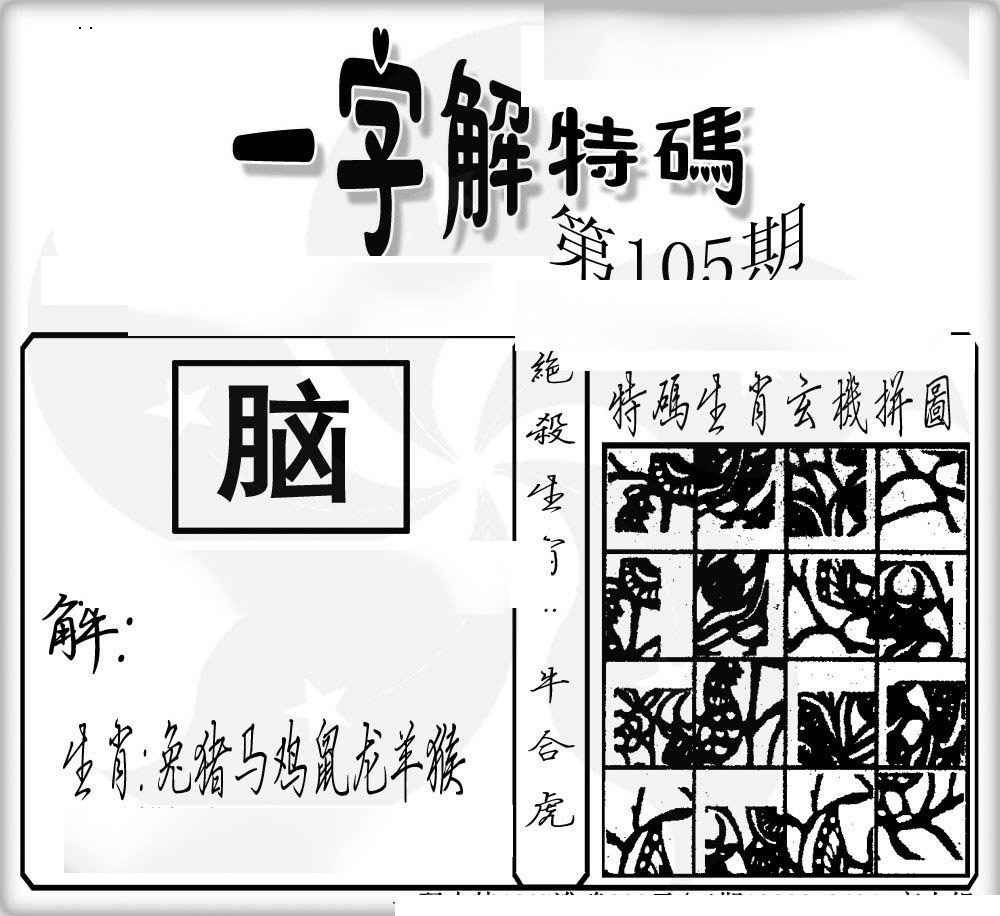 一字解特碼
第105期
脑
解:
生肖:兔猪马鸡鼠龙羊猴
絶殺生肖:牛合虎
特碼生肖玄機拼圖